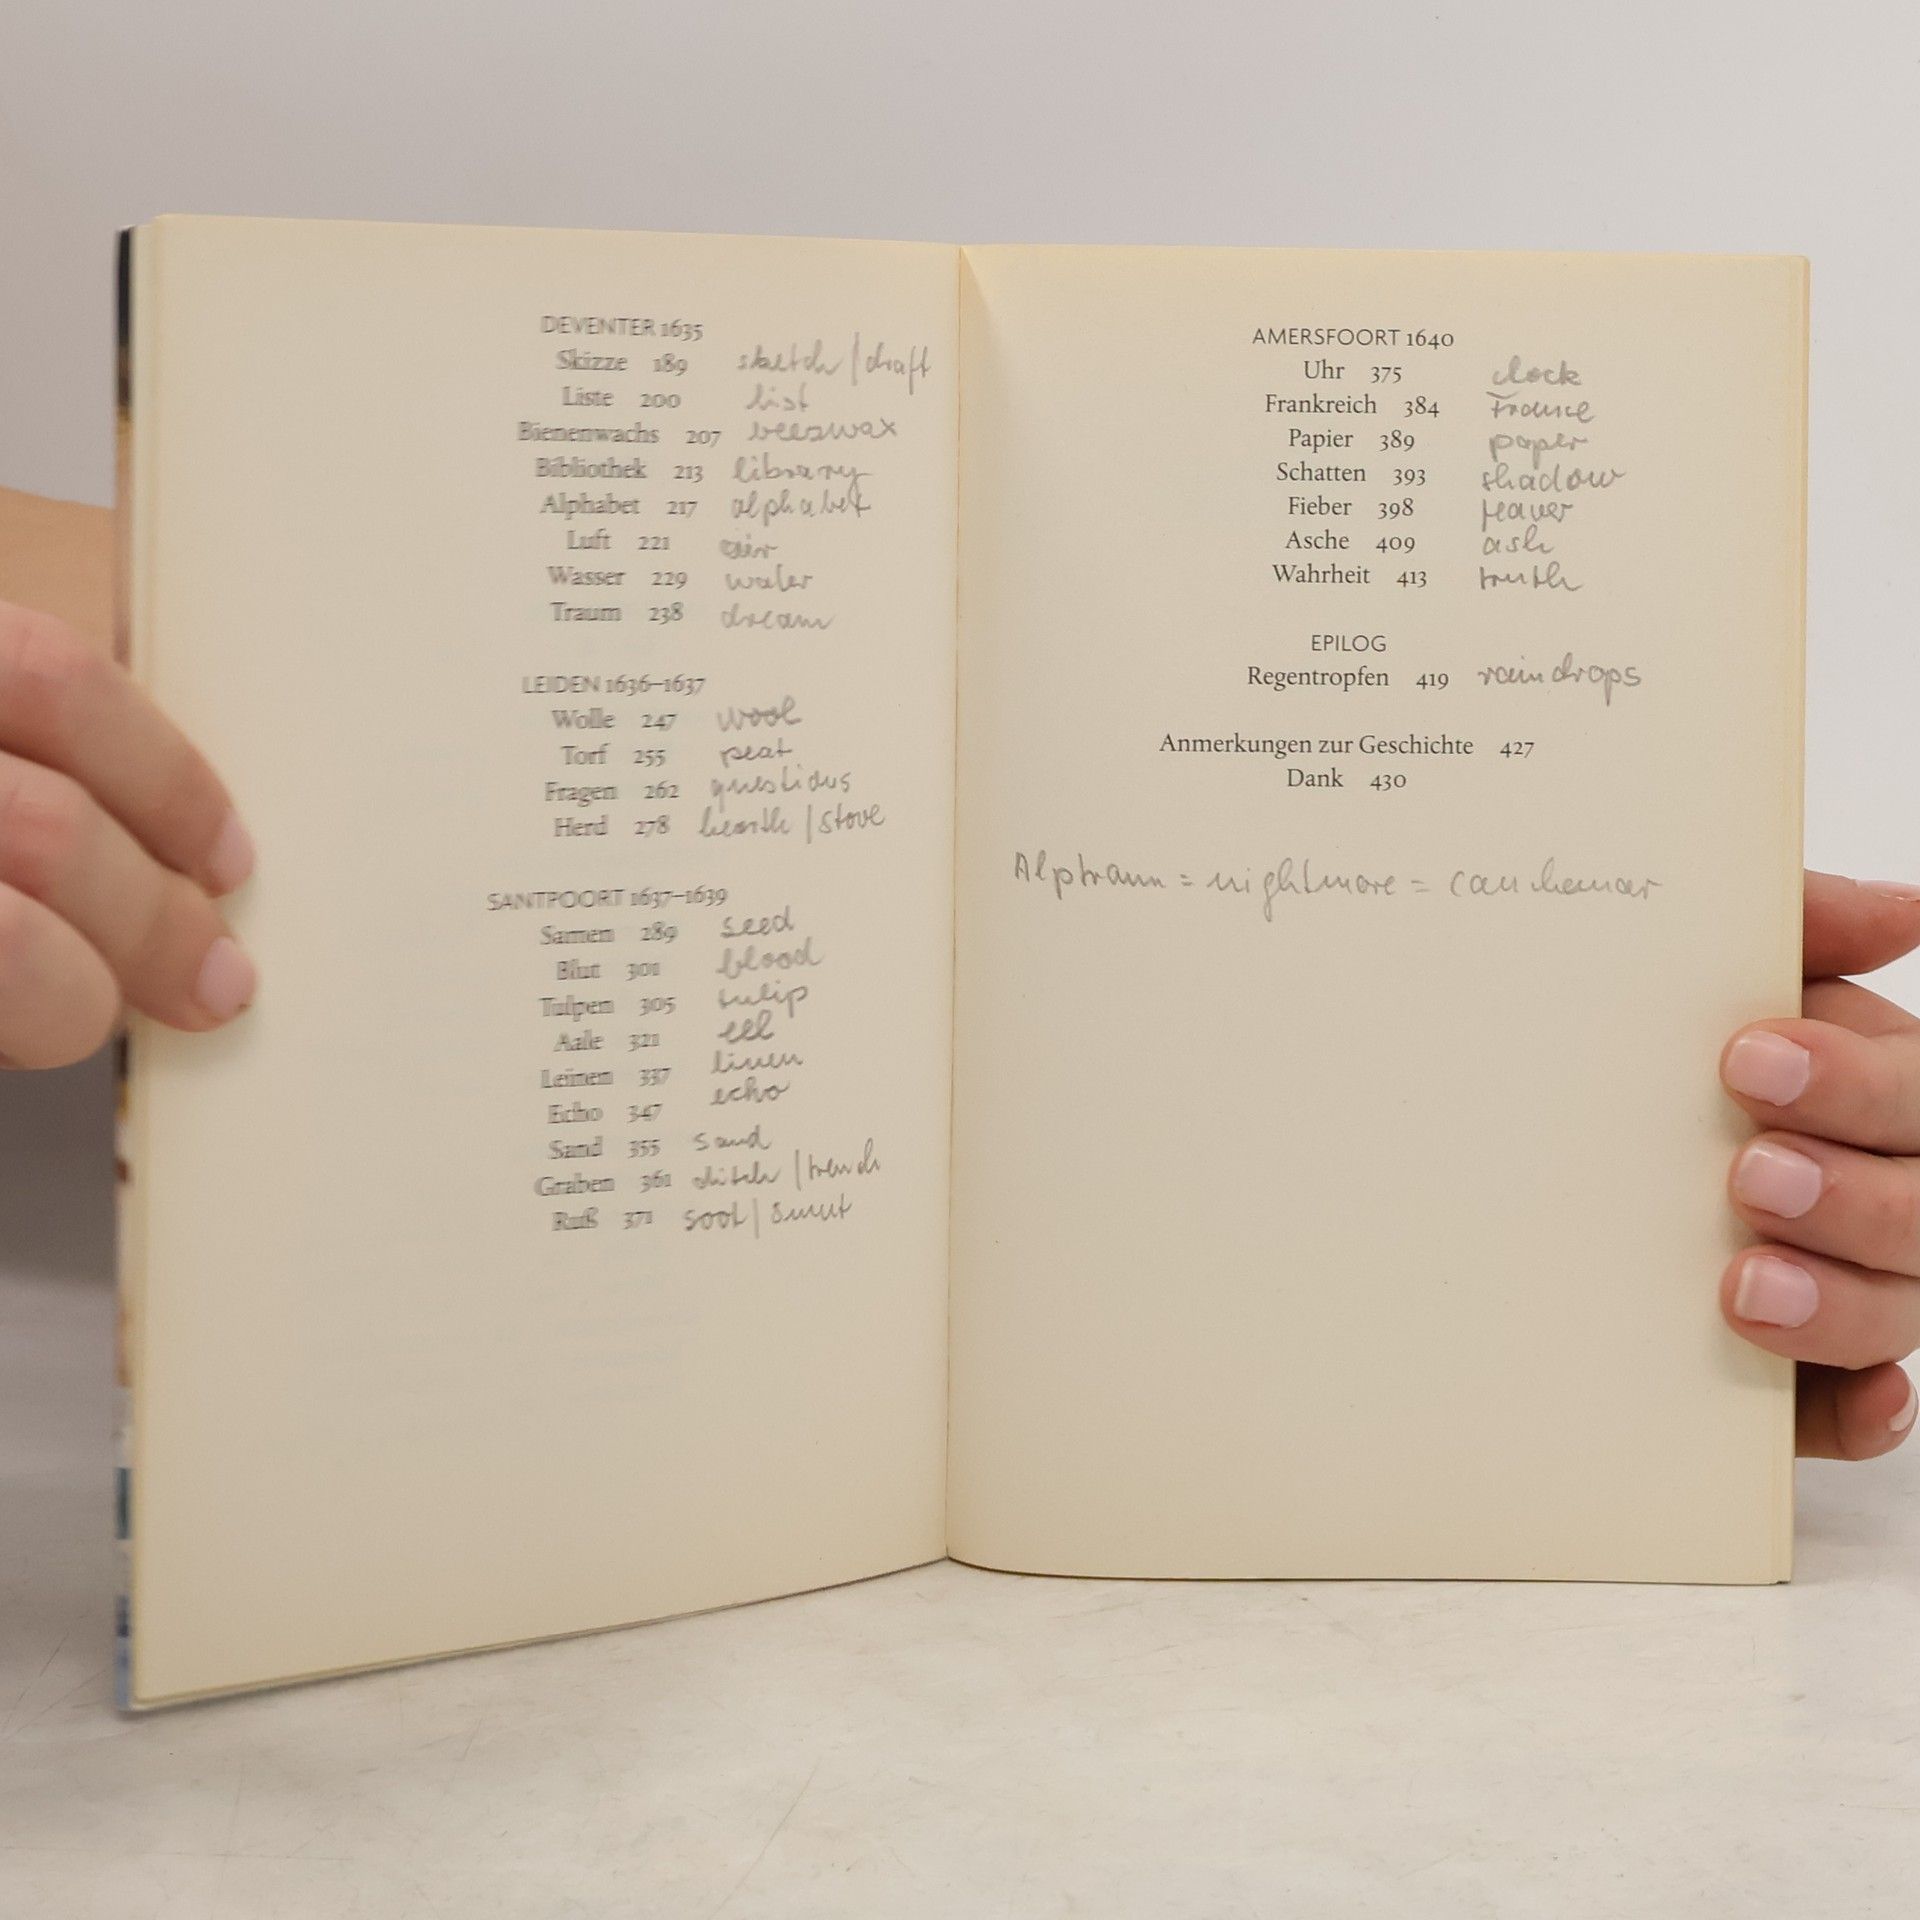 DEVENTER 1635
Skizze 189 sketch / draft
Liste 200 list
Bienenwachs 207 beeswax
Bibliothek 213 library
Alphabet 217 alphabet
Luft 221 air
Wasser 229 water
Traum 238 dream
LEIDEN 1636–1637
Wolle 247 wool
Torf 255 peat
Fragen 262 questions
Herd 278 hearth / stove
SANTPOORT 1637–1639
Samen 289 seed
Blut 301 blood
Tulpen 305 tulip
Aale 321 eel
Leinen 337 linen
Echo 347 echo
Sand 355 sand
Graben 361 ditch / trench
Ruß 371 soot / smut
AMERSFOORT 1640
Uhr 375 clock
Frankreich 384 France
Papier 389 paper
Schatten 393 shadow
Fieber 398 feaver
Asche 409 ash
Wahrheit 413 truth
EPILOG
Regentropfen 419 raindrops
Anmerkungen zur Geschichte 427
Dank 430
Alptraum = nightmare = cauchemar